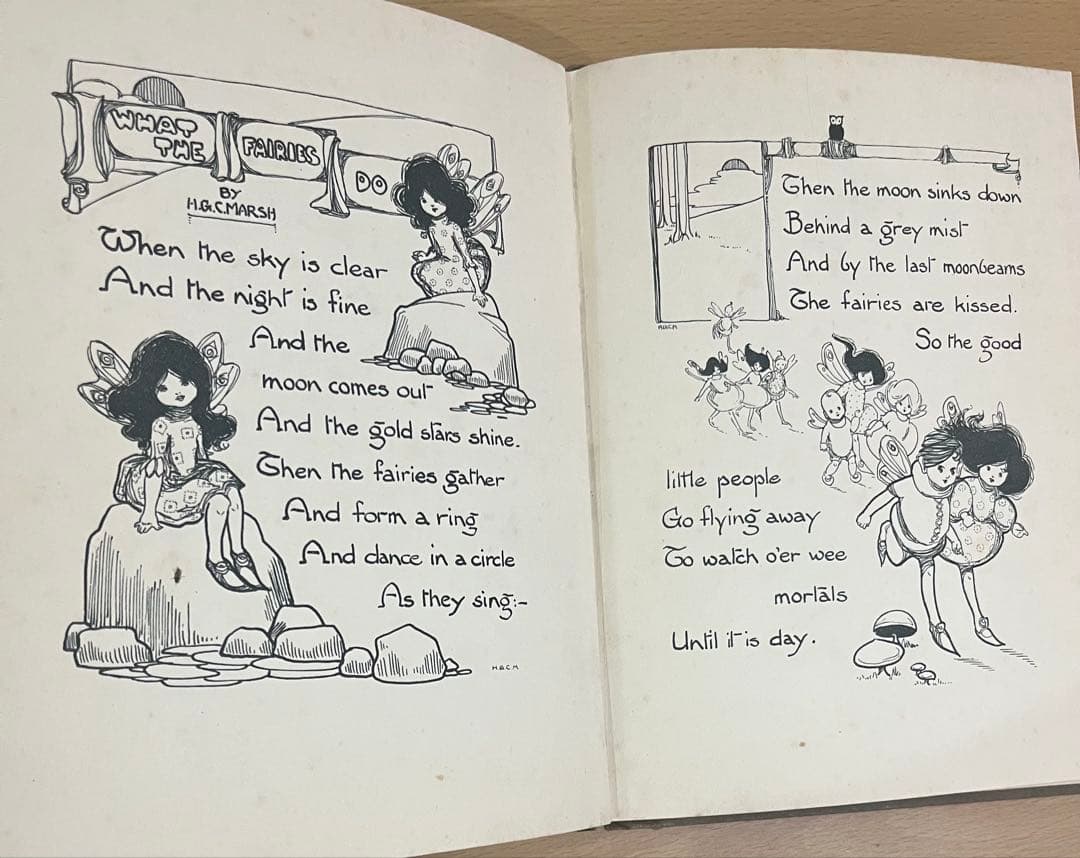 WHAT
THE
FAIRIES
DO
BY
H.G.C.MARSH
When the sky is clear
And the night is fine
And the
moon comes out
And the gold stars shine.
Then the fairies gather
And form a ring
And dance in a circle
As they sing:-
H.G.C.M
Then the moon sinks down
Behind a grey mist
And by the last moonbeams
The fairies are kissed.
So the good
H.G.C.M
little people
Go flying away
To watch o'er wee
mortals
Until it is day.